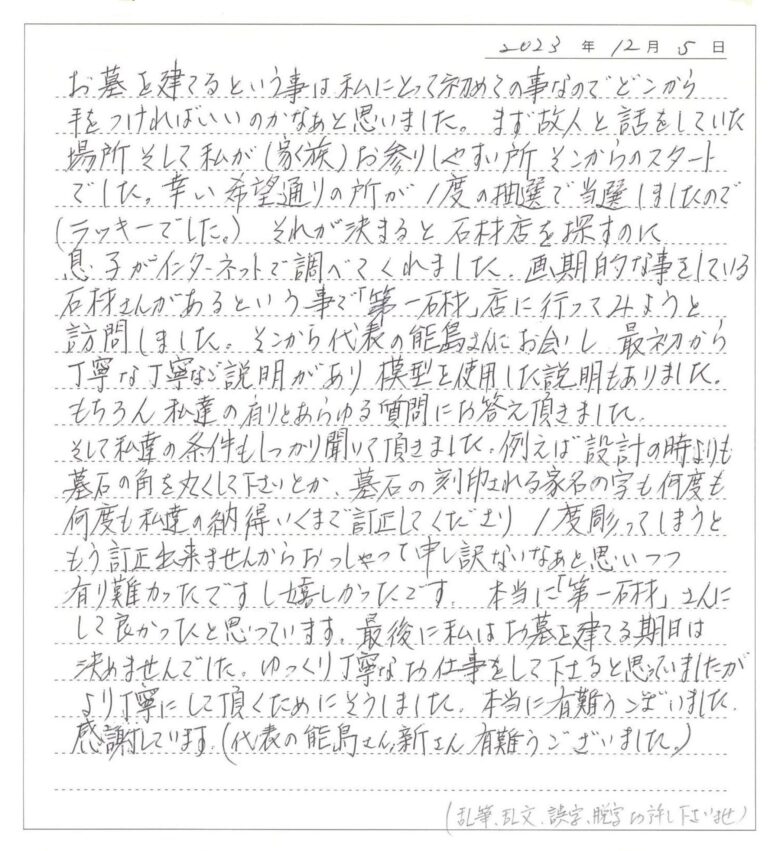 2023 年 12 月 5 日
お墓を建てるという事は私にとって初めての事なのでどこから
手をつければいいのかなあと思いました。まず故人と話をしていた
場所そして私が(家族)お参りしやすい所そこからのスタート
でした。幸い希望通りの所が1度の抽選で当選しましたので
(ラッキーでした。) それが決まると石材店を探すのに
息子がインターネットで調べてくれました。画期的な事をしている
石材さんがあるという事で「第一石材」店に行ってみようと
訪問しました。そこから代表の能島さんにお会いし 最初から
丁寧な丁寧なご説明があり 模型を使用した説明もありました。
もちろん私達の有りとあらゆる質問にお答え頂きました。
そして私達の条件もしっかり聞いて頂きました。例えば設計の時よりも
墓石の角を丸くして下さいとか、墓石の刻印される家名の字も何度も
何度も私達の納得いくまで訂正してくださり 1度彫ってしまうと
もう訂正出来ませんからおっしゃって申し訳ないなあと思いつつ
有り難かったですし嬉しかったです。 本当に「第一石材」さんに
して良かったと思っています。最後に私はお墓を建てる期日は
決めませんでした。ゆっくり丁寧なお仕事をして下さると思っていましたが
より丁寧にして頂くためにそうしました。本当に有難うございました。
感謝しています。(代表の能島さん、新さん 有難うございました。)
(乱筆、乱文、誤字、脱字お許し下さいませ)